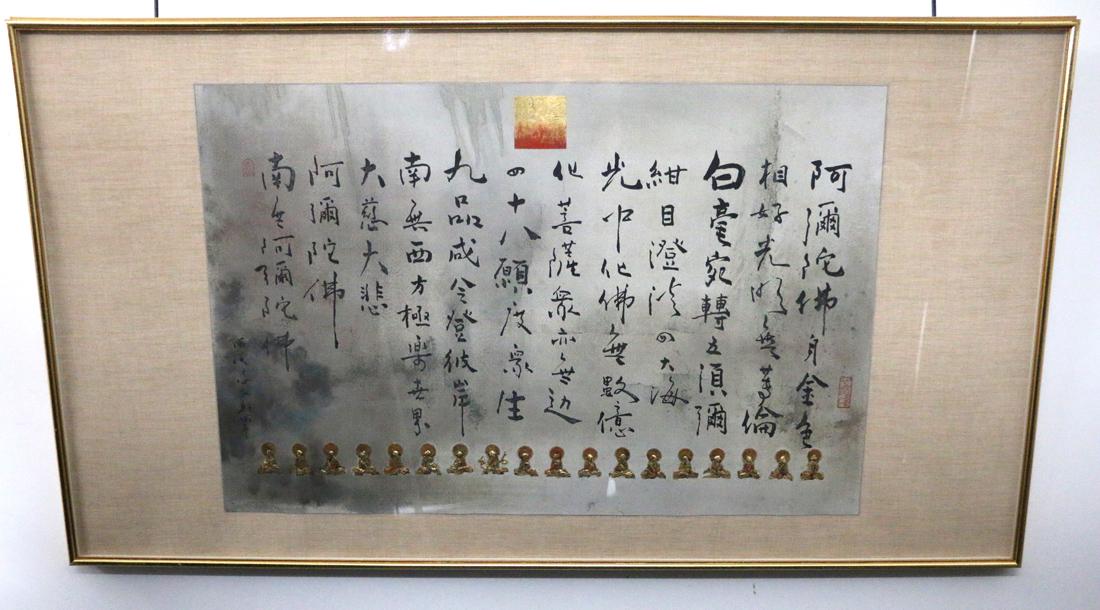 阿彌陀佛身金色
相好光明無等倫
白毫宛轉五須彌
紺目澄清四大海
光中化佛無數億
化菩薩眾亦無边
四十八願度眾生
九品咸令登彼岸
南無西方極樂世界
大慈大悲
阿彌陀佛
南無阿彌陀佛